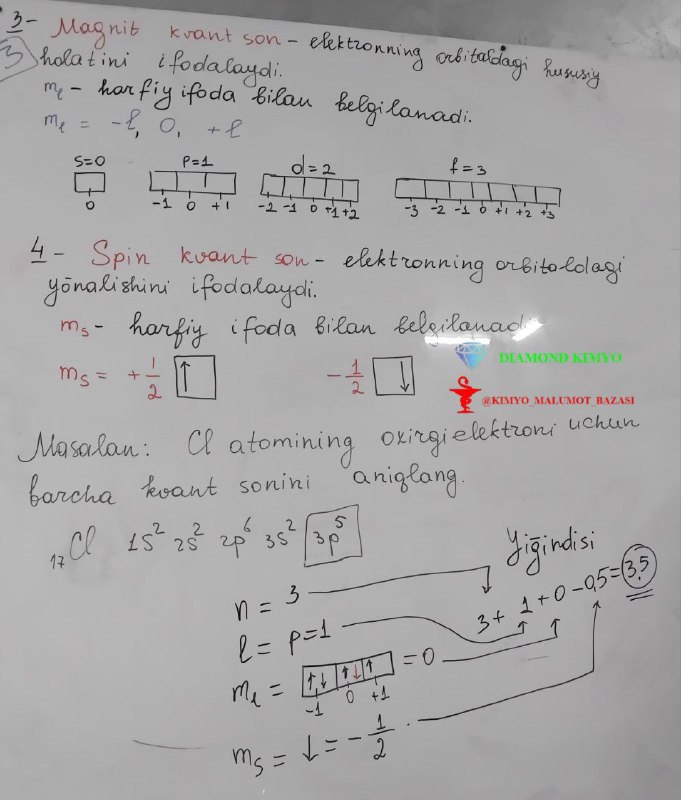 3
3- Magnit kvant son - elektronning orbitaldagi hususiy
holatini ifodalaydi.
mℓ - harfiy ifoda bilan belgilanadi.
mℓ = -ℓ, 0, +ℓ
S=0 P=1 d=2 f=3
0 -1 0 +1 -2 -1 0 +1 +2 -3 -2 -1 0 +1 +2 +3
4- Spin kvant son - elektronning orbitaldagi
yōnalishini ifodalaydi.
ms - harfiy ifoda bilan belgilanadi.
ms = +1/2 ↑ -1/2 ↓
DIAMOND KIMYO
@KIMYO_MALUMOT_BAZASI
Masalan: Cl atomining oxirgi elektroni uchun
barcha kvant sonini aniqlang.
₁₇Cl 1S² 2S² 2p⁶ 3S² 3p⁵
Yiğindisi
n = 3
3+ 1+0-0,5=3,5
ℓ = p=1
mℓ = ↑↓ ↑↓ ↑ = 0
-1 0 +1
ms = ↓ = -1/2